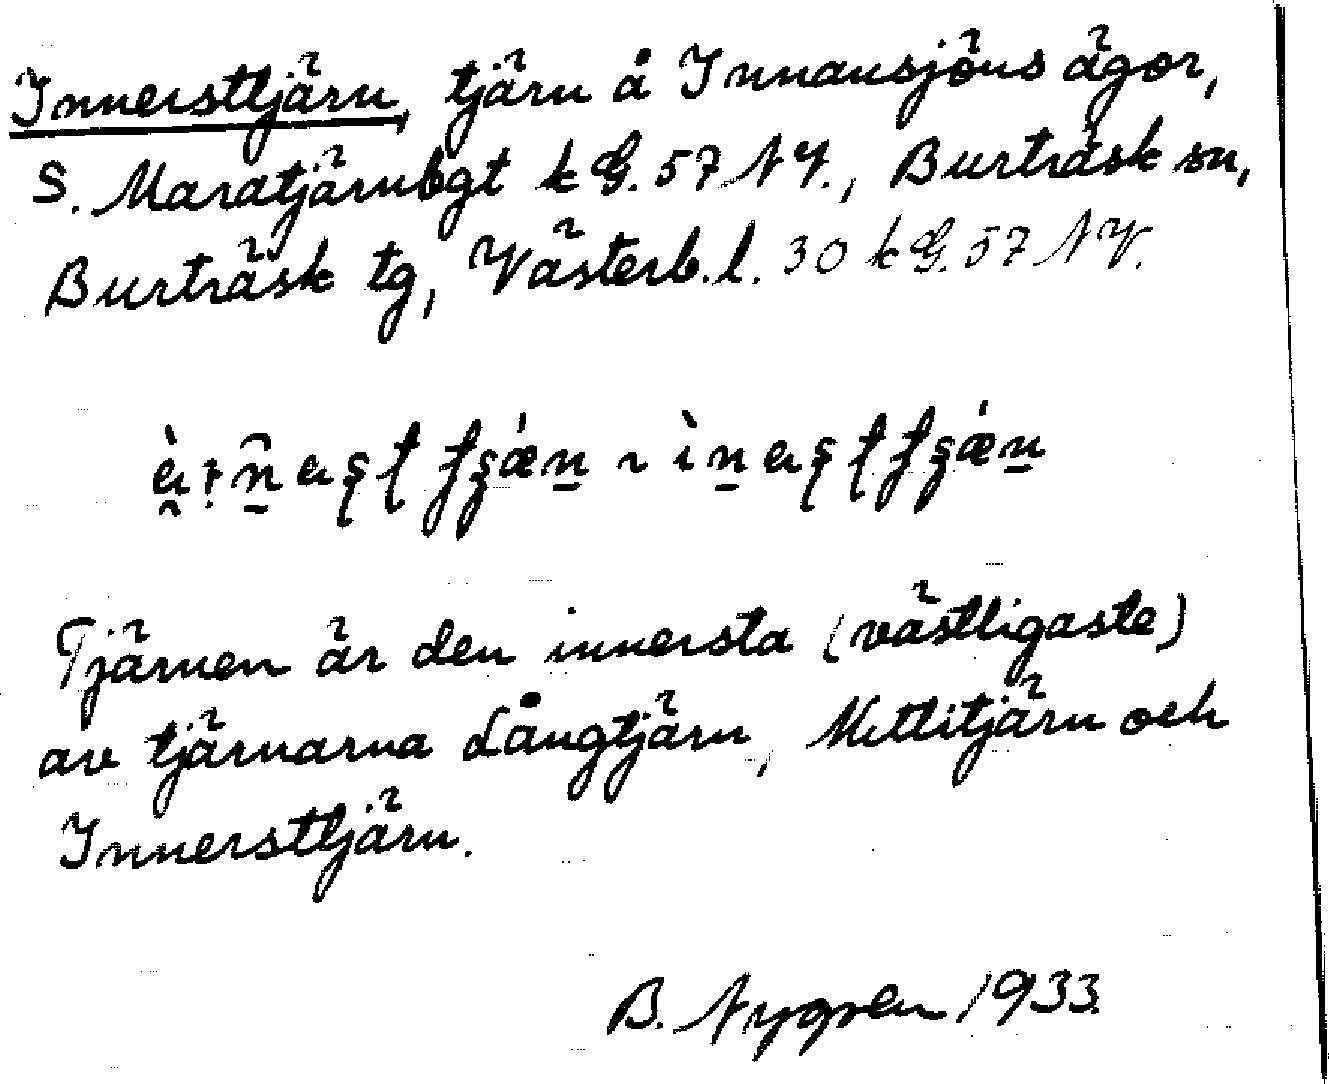 Innersttjärn, tjärn å Innansjöns ägor,
S. Maratjärnbgt k G. 57 N V., Burträsk sn,
Burträsk tg, Västerb. l. 30 k G. 57 N V.
Tjärnen är den innersta (västligaste)
av tjärnarna Långtjärn, Mittitjärn och
Innersttjärn.
B. Nygren 1933.